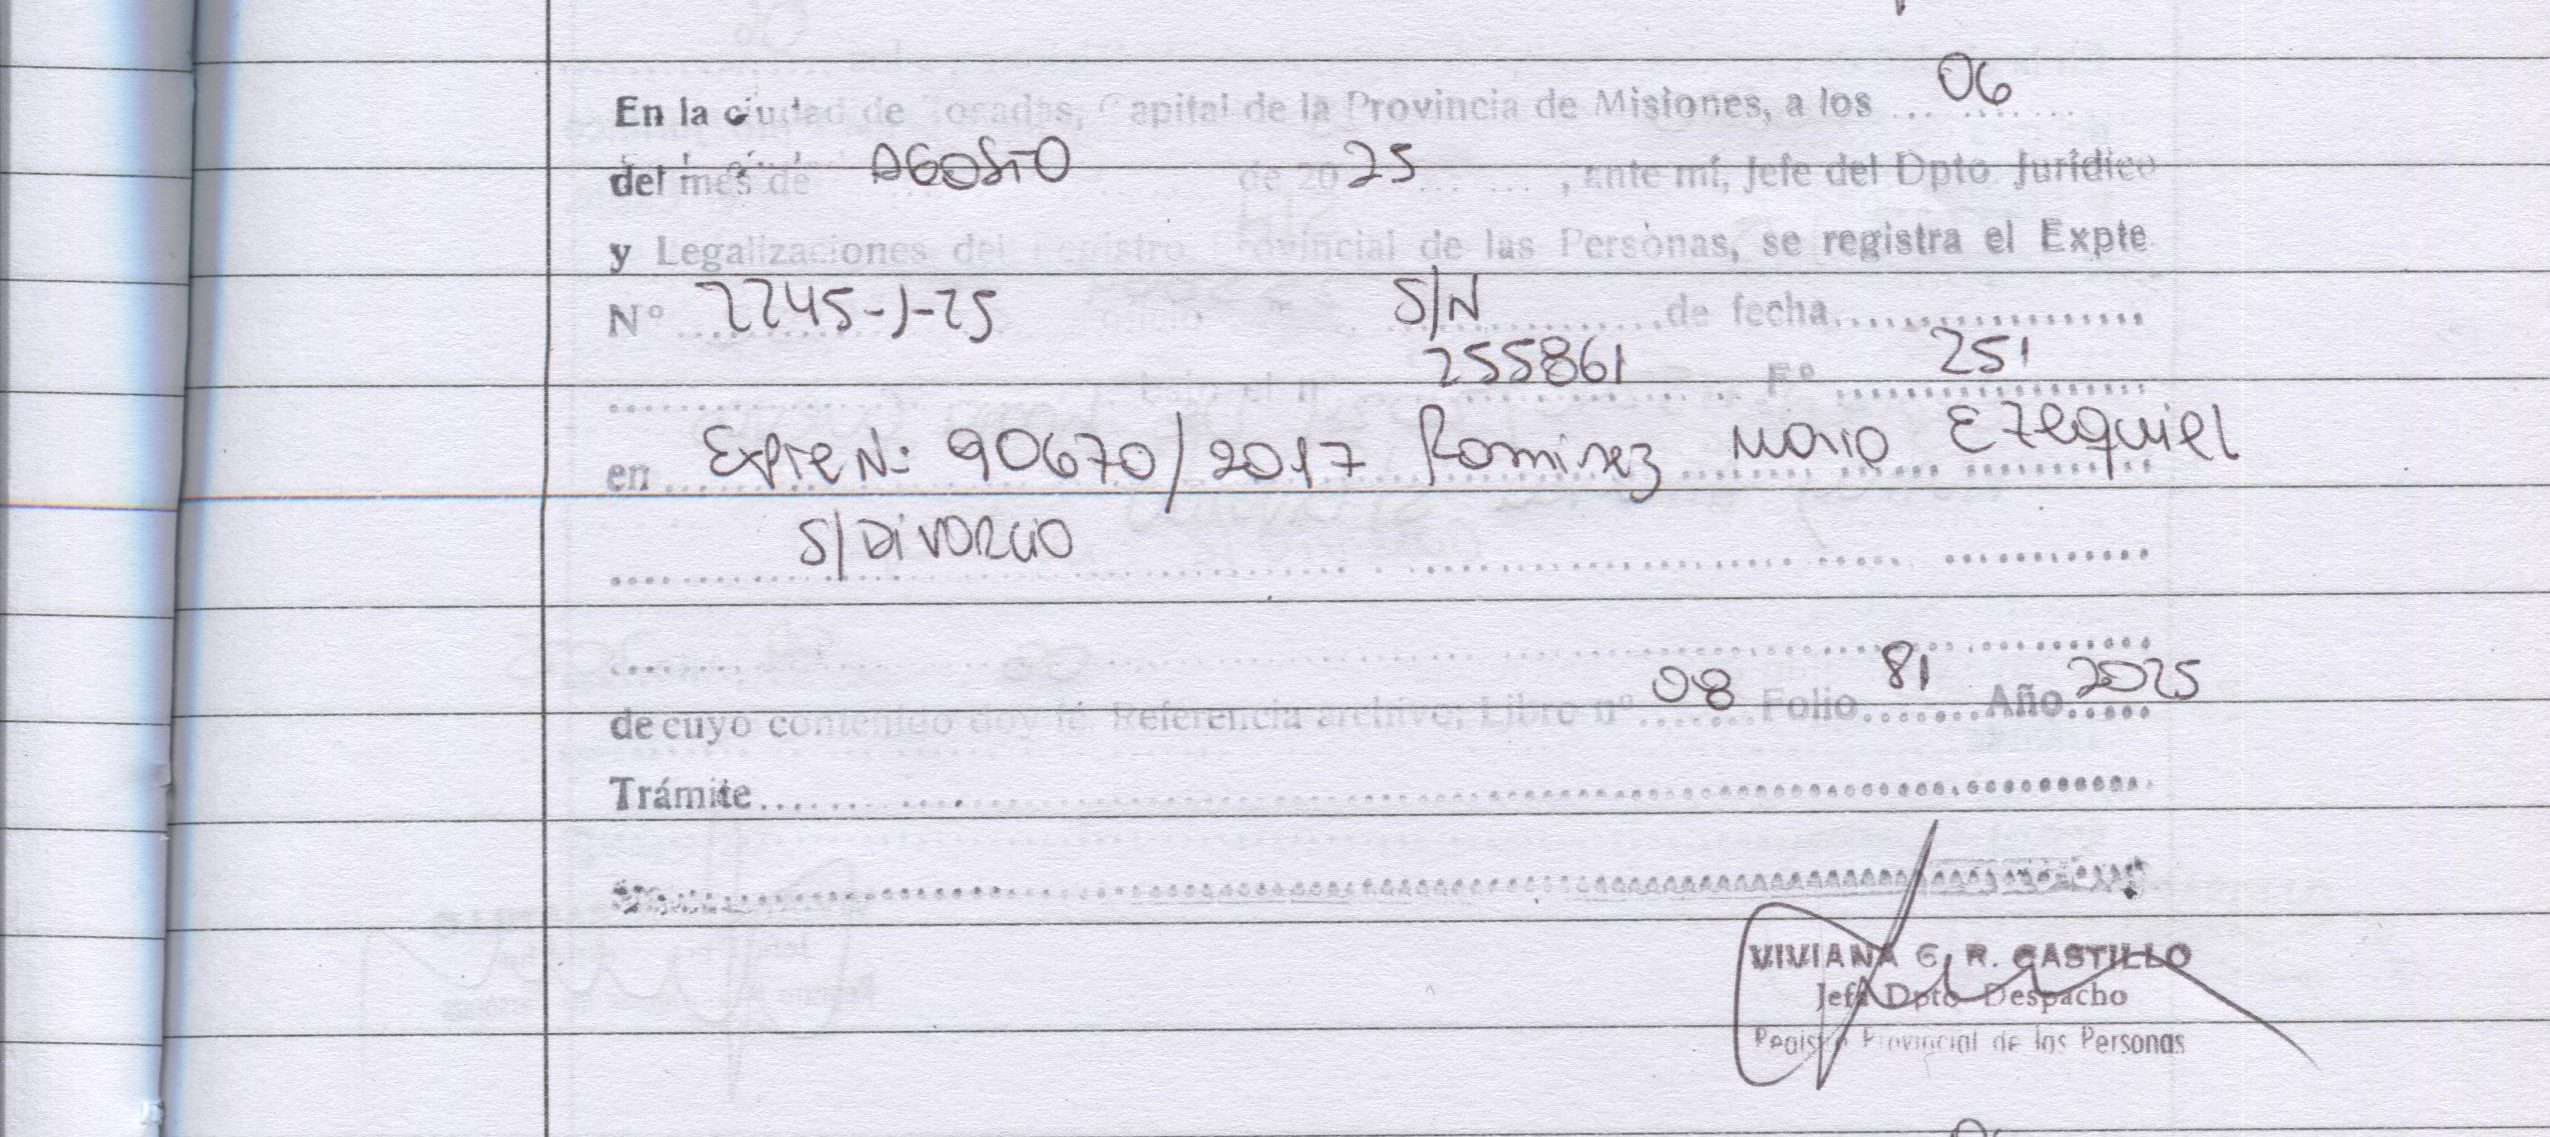 En la ciudad de Posadas, Capital de la Provincia de Misiones, a los ... 06 .......
del mes de AGOSTO de 20 25 ... , ante mí, Jefe del Dpto Jurídico
y Legalizaciones del Registro Provincial de las Personas, se registra el Expte
Nº 2245-J-25 S/N de fecha
bajo el nº 255861 Fº 251
en Expte N: 90670/2017 Ramirez Mario Ezequiel
S/DiVORCiO
de cuyo contenido doy fé. Referencia archivo; Libro nº 08 Folio 81 Año 2025
Trámite
VIVIANA G. R. CASTILLO
Jefa Dpto Despacho
Registro Provincial de las Personas